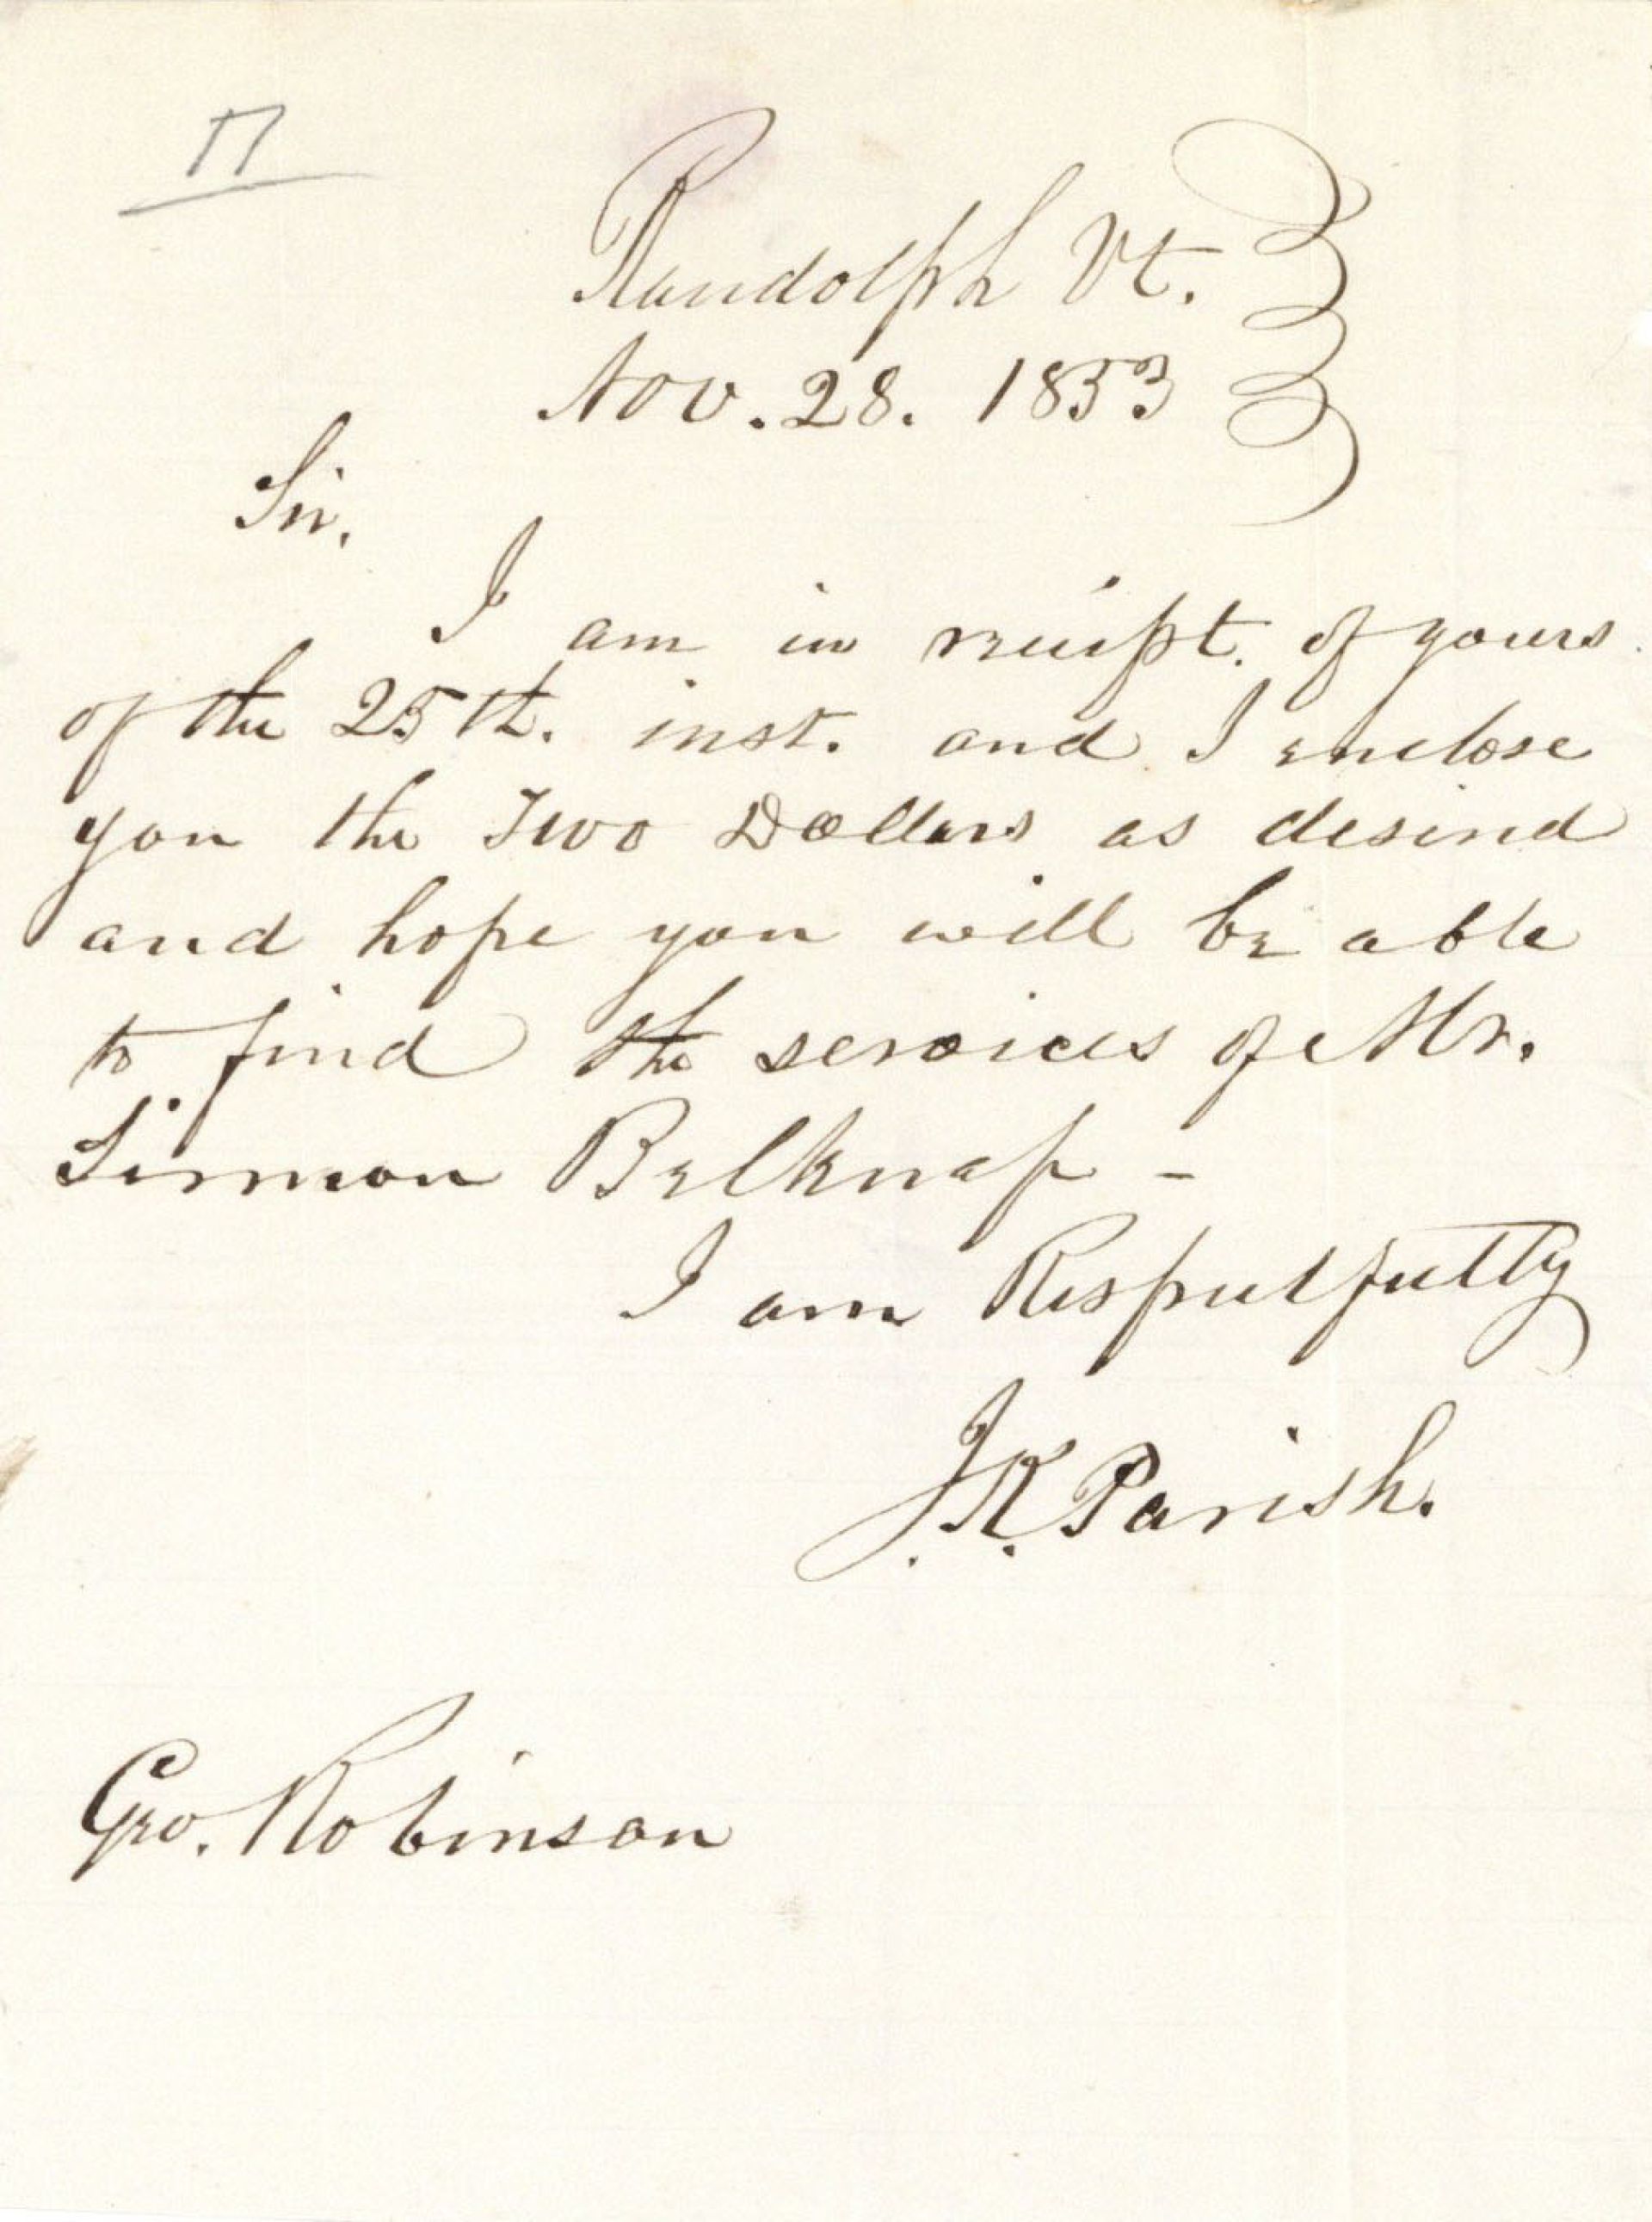 17
Randolph Vt.
Nov. 28. 1853
Sir.
I am in receipt. of yours
of the 25th. inst. and I enclose
you the Two Dollars as desired
and hope you will be able
to find the services of Mr.
Simeon Belknap -
I am Respectfully
J. K. Parish.
Geo. Robinson